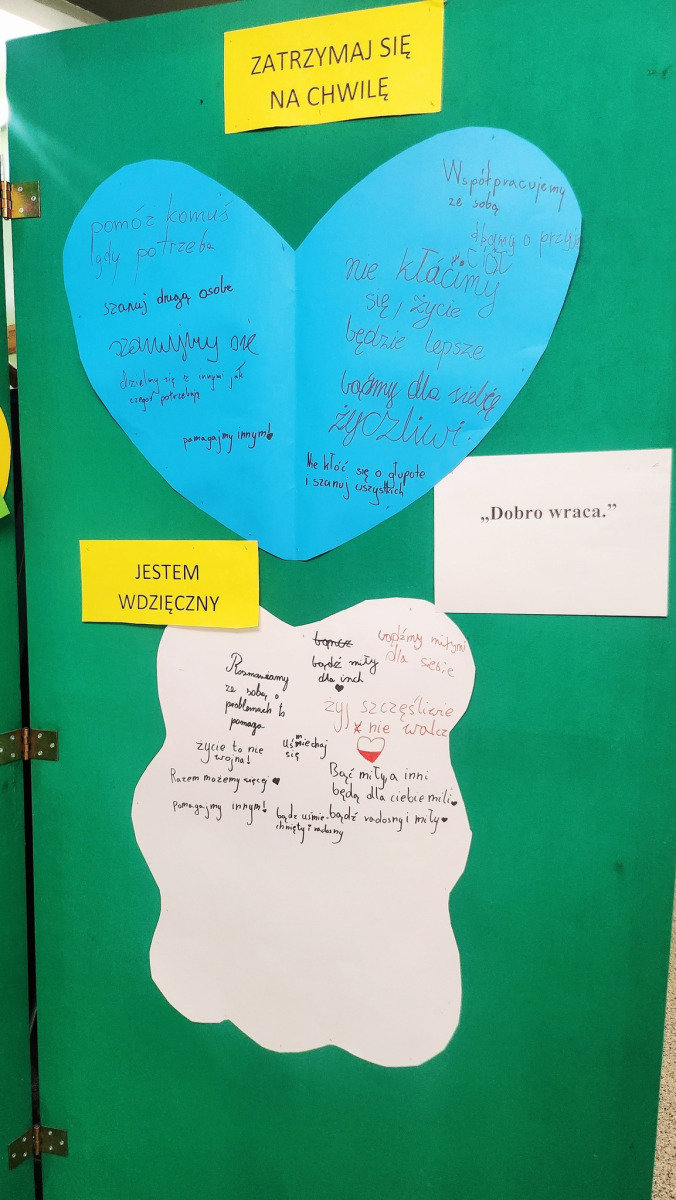 ZATRZYMAJ SIĘ
NA CHWILĘ
pomóż komuś
gdy potrzeba
szanuj drugą osobe
szanujmy się
dzielmy się z innymi jak
czegoś potrzebują
pomagajmy innym!
Współpracujemy
ze sobą
dbajmy o przyja
ciół
nie kłócimy
się, życie
będzie lepsze
bąćmy dla siebię
życzliwi.
Nie kłóć się o głupote
i szanuj wszystkich
„Dobro wraca.”
JESTEM
WDZIĘCZNY
Rozmawiamy
ze sobą o
problemach to
pomaga
bądź miły
dla inch
bądźmy miłymi
dla siebie
żyj szczęśliwie
nie walcz
życie to nie
wojna!
uśmiechaj
się
Razem możemy więcej
Bąć miły, a inni
będą dla ciebie mili
pomagajmy innym!
bądz uśmie-
chnięty i radosny
bądź radosny i miły